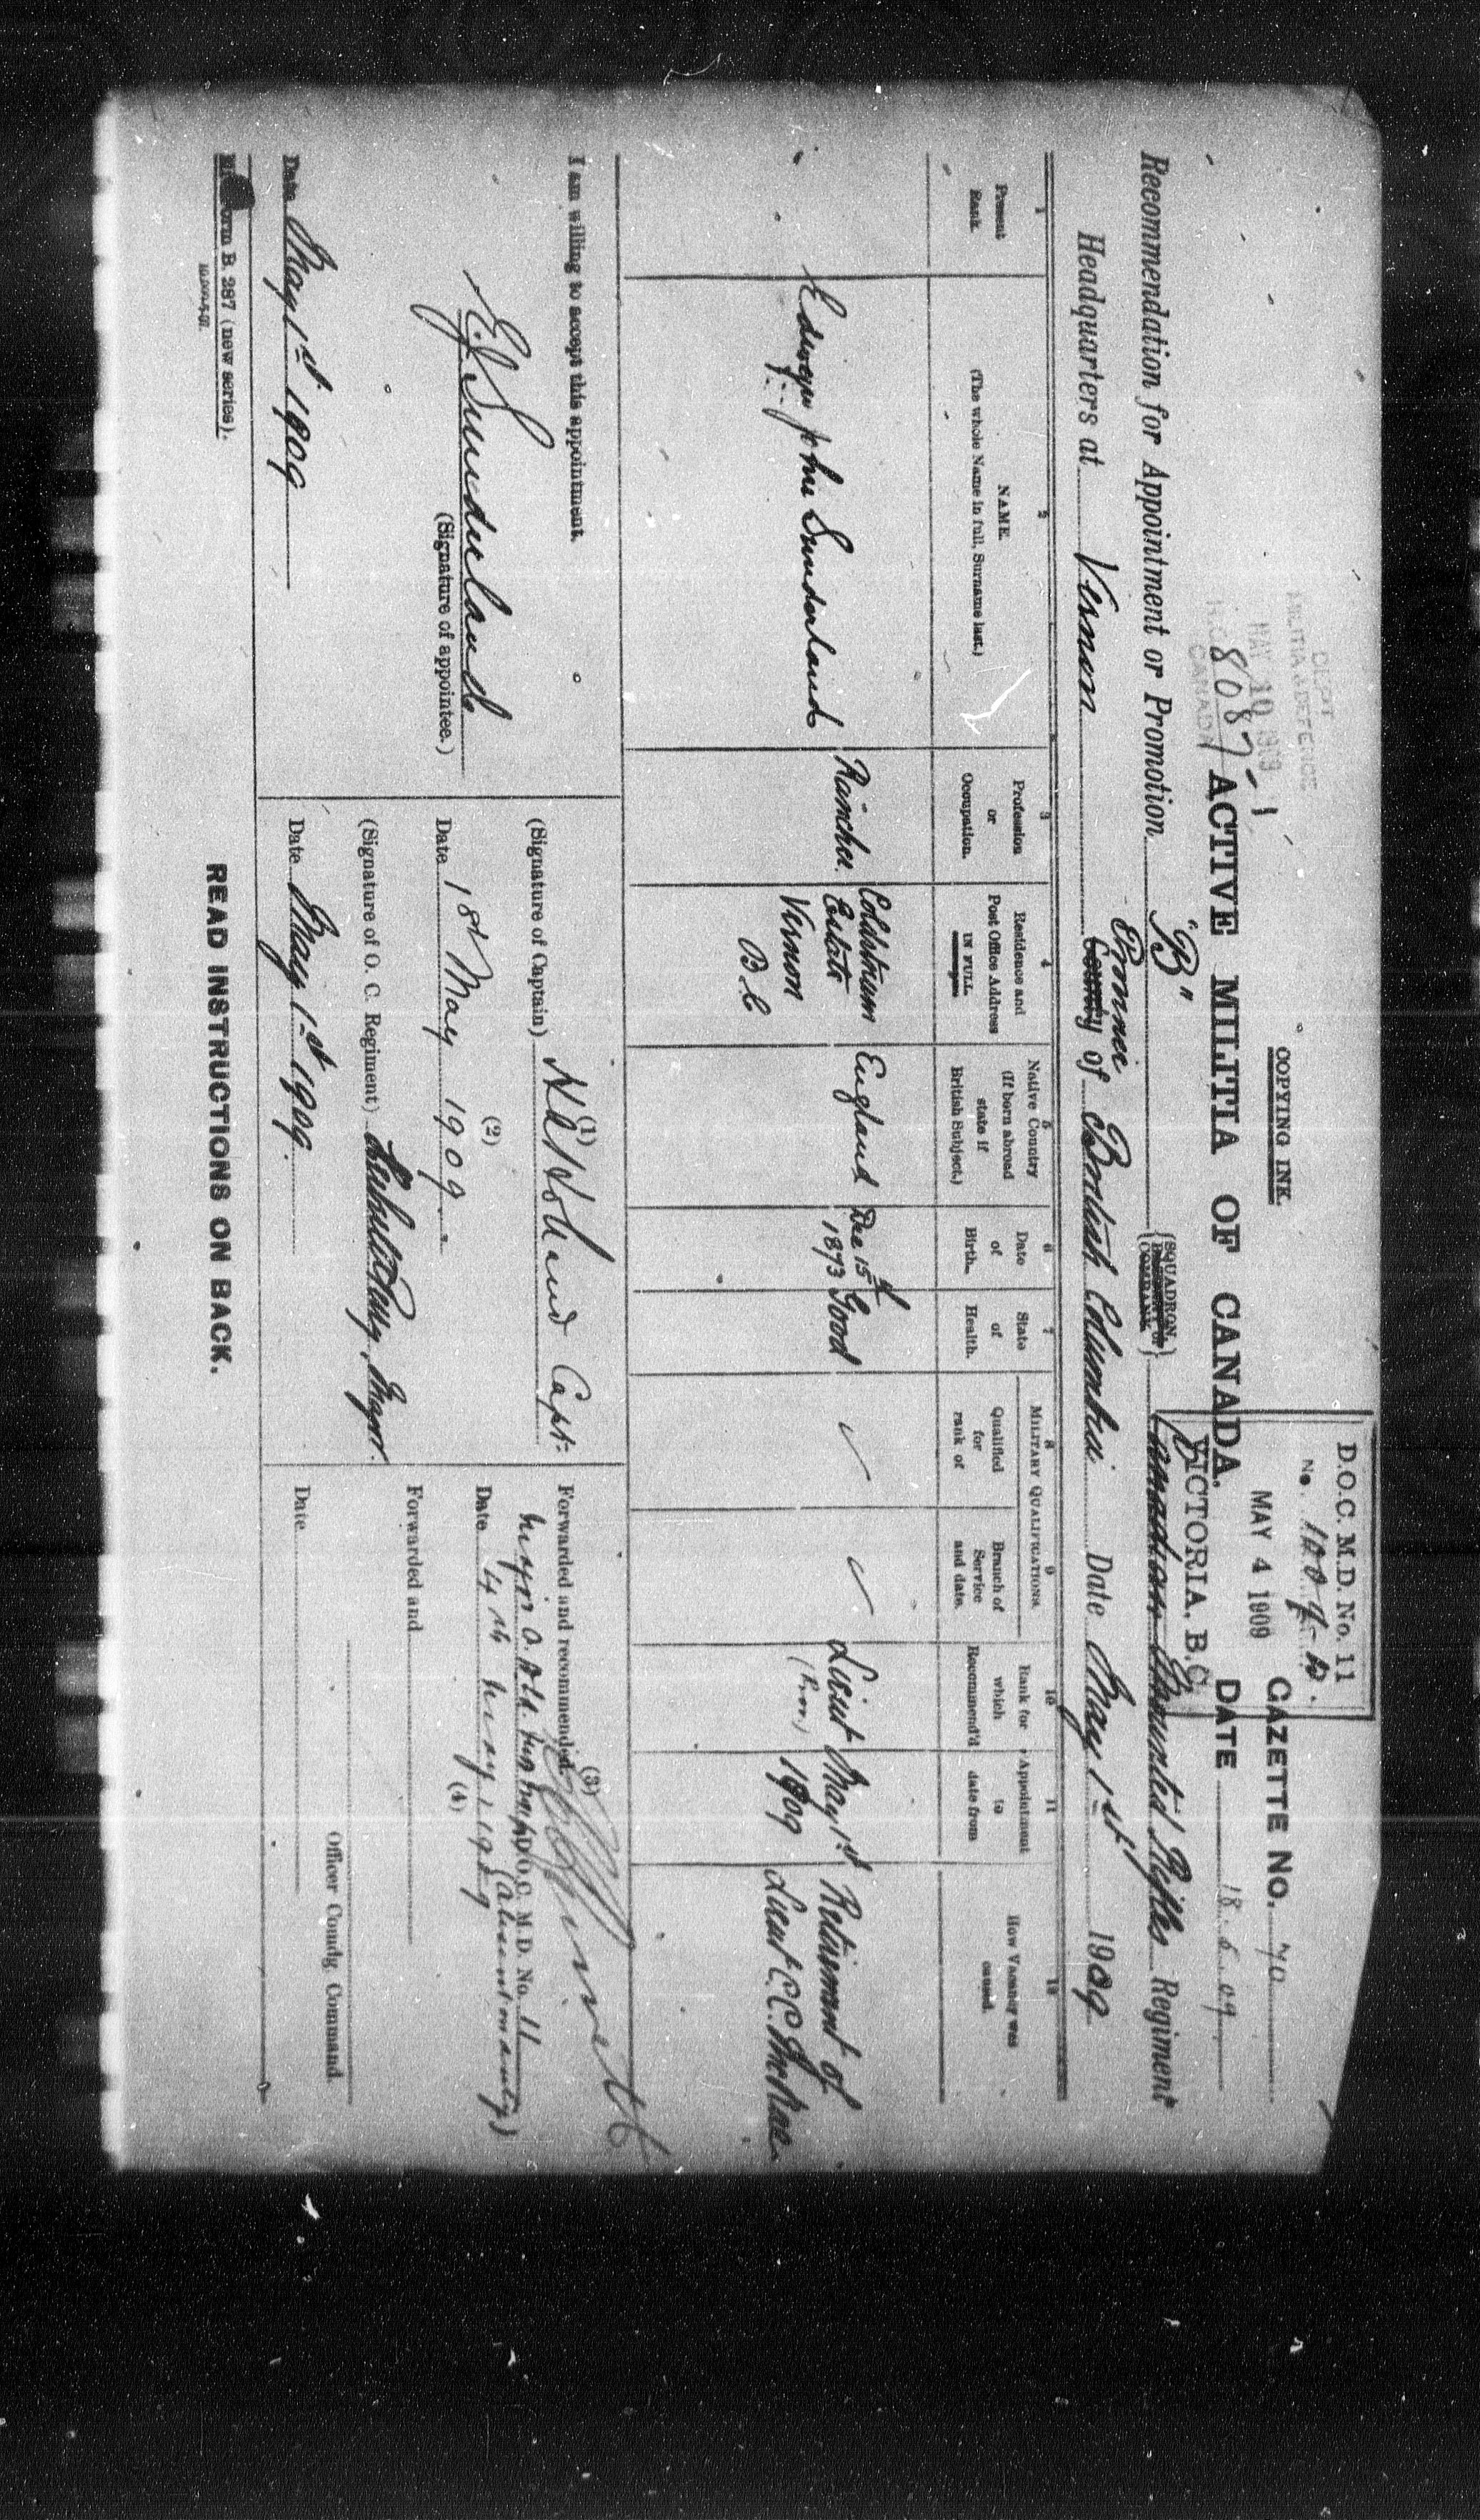 COPYING INK.
D.O.C. M.D. No. 11
No. 100-9-10.
MAY 4 1909
VICTORIA. B.C.
GAZETTE NO. 70
DATE 18.5.09
DEPT
MILITIA & DEFENCE
MAY 10 1909
H.Q. 8087-1
CANADA
ACTIVE MILITIA OF CANADA.
Recommendation for Appointment or Promotion "B" {SQUADRON, COMPANY} Canadian Mounted Rifles Regiment
Province
Headquarters at Vernon County of British Columbia Date May 1st 1909
1 Present Rank.
2 NAME. (The whole Name in full, Surname last.)
3 Profession or Occupation.
4 Residence and Post Office Address IN FULL.
5 Native Country (If born abroad state if British Subject.)
6 Date of Birth.
7 State of Health.
MILITARY QUALIFICATIONS.
8 Qualified for rank of
9 Branch of Service and date.
10 Rank for which Recommend'd
11 Appointment to date from
12 How Vacancy was caused.
Edwyn John Sunderland
Rancher.
Coldstream
Estate
Vernon
B.C
England
Dec 15th
1873
Good
Lieut
(Prov.)
May 1st
1909
Retirement of
Lieut C.C. McRae
I am willing to accept this appointment.
E.J. Sunderland
(Signature of appointee.)
Date May 1st 1909
(1)
(Signature of Captain) Capt.
Date 1st May 1909
(2)
(Signature of O. C. Regiment) Major
Date May 1st 1909.
(3)
Forwarded and recommended
D.O.C. M.D. No. 11
Date 4th May 1909
(4)
Forwarded and
Officer Comdg. Command.
Date
Form B. 287 (new series).
READ INSTRUCTIONS ON BACK.